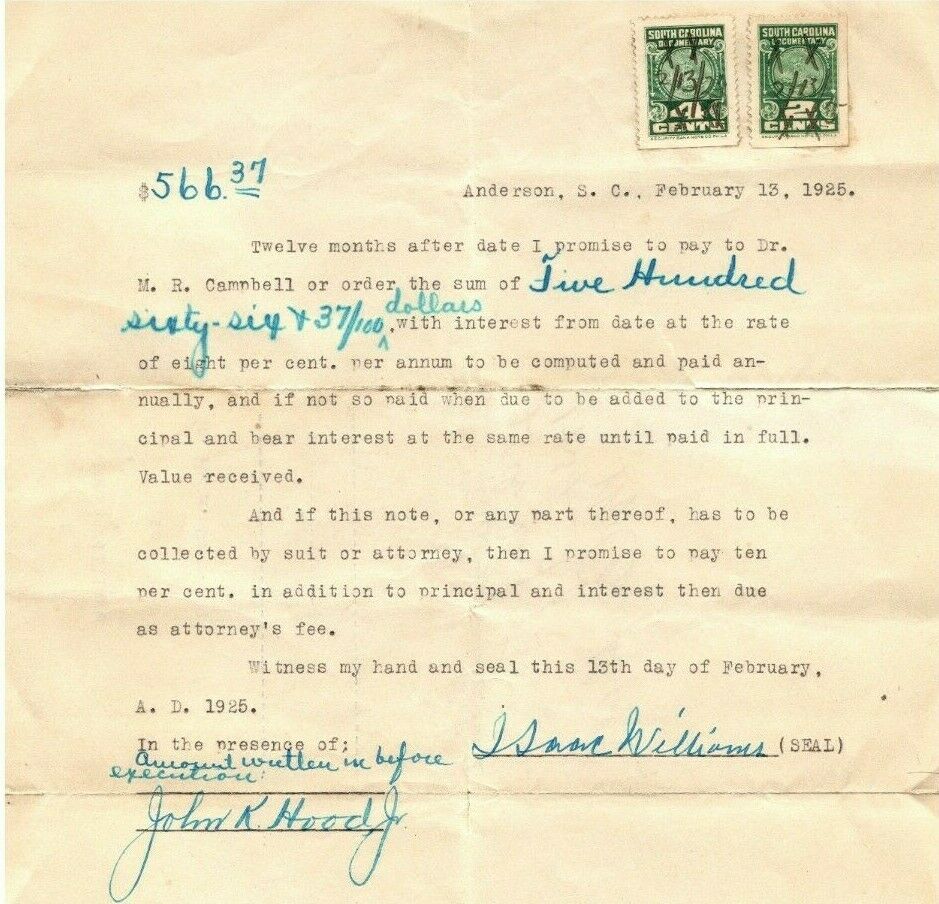 SOUTH CAROLINA SOUTH CAROLINA
DOCUMENTARY DOCUMENTARY
2/13/ 2/13
4 2
CENTS CENTS
$566.37 Anderson, S. C., February 13, 1925.
Twelve months after date I promise to pay to Dr.
M. R. Campbell or order the sum of Five Hundred
sixty-six & 37/100 dollars, with interest from date at the rate
of eight per cent. per annum to be computed and paid an-
nually, and if not so paid when due to be added to the prin-
cipal and bear interest at the same rate until paid in full.
Value received.
And if this note, or any part thereof, has to be
collected by suit or attorney, then I promise to pay ten
per cent. in addition to principal and interest then due
as attorney's fee.
Witness my hand and seal this 13th day of February,
A. D. 1925.
In the presence of; Isaac Williams (SEAL)
Amount written in before
execution:
John K. Hood, Jr.